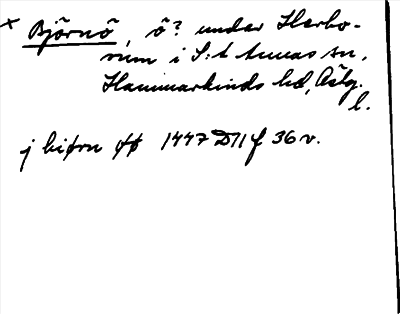 x Björnö, ö? under Herbo-
rum i S:t Annas sn,
Hammarkinds hd, Östg.
l.
j biørn øø 1447 D11 f 36 v.